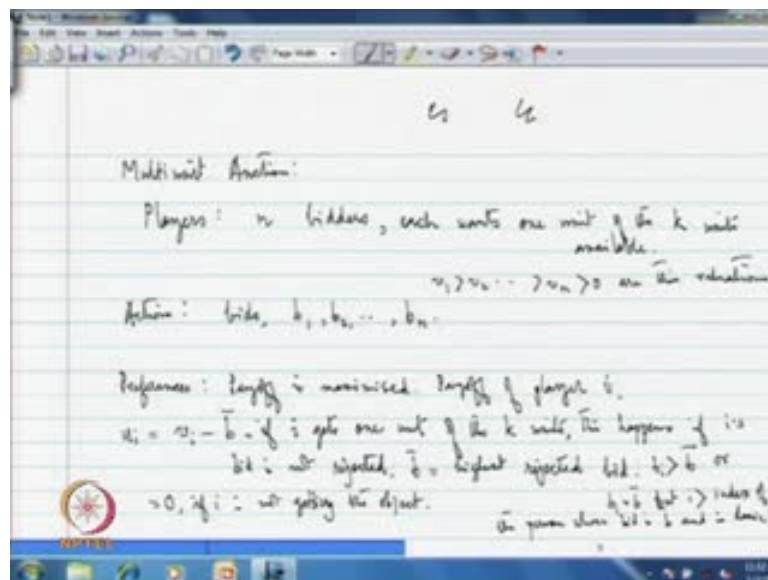 Multiunit Auction:
Players: n bidders, each wants one unit of the k units
available.
v₁ > v₂ ... > v_n > 0 are their valuations
Action: bids, b₁, b₂, ..., b_n.
Preferences: Payoff is maximised. Payoff of player i,
u_i = v_i - b̄, if i gets one unit of the k units, this happens if i's
bid is not rejected. b̄ = highest rejected bid. b_i > b̄ or
= 0, if i is not getting the object.
b_i = b̄ but i > index of
the person whose bid = b̄ and is
NPTEL